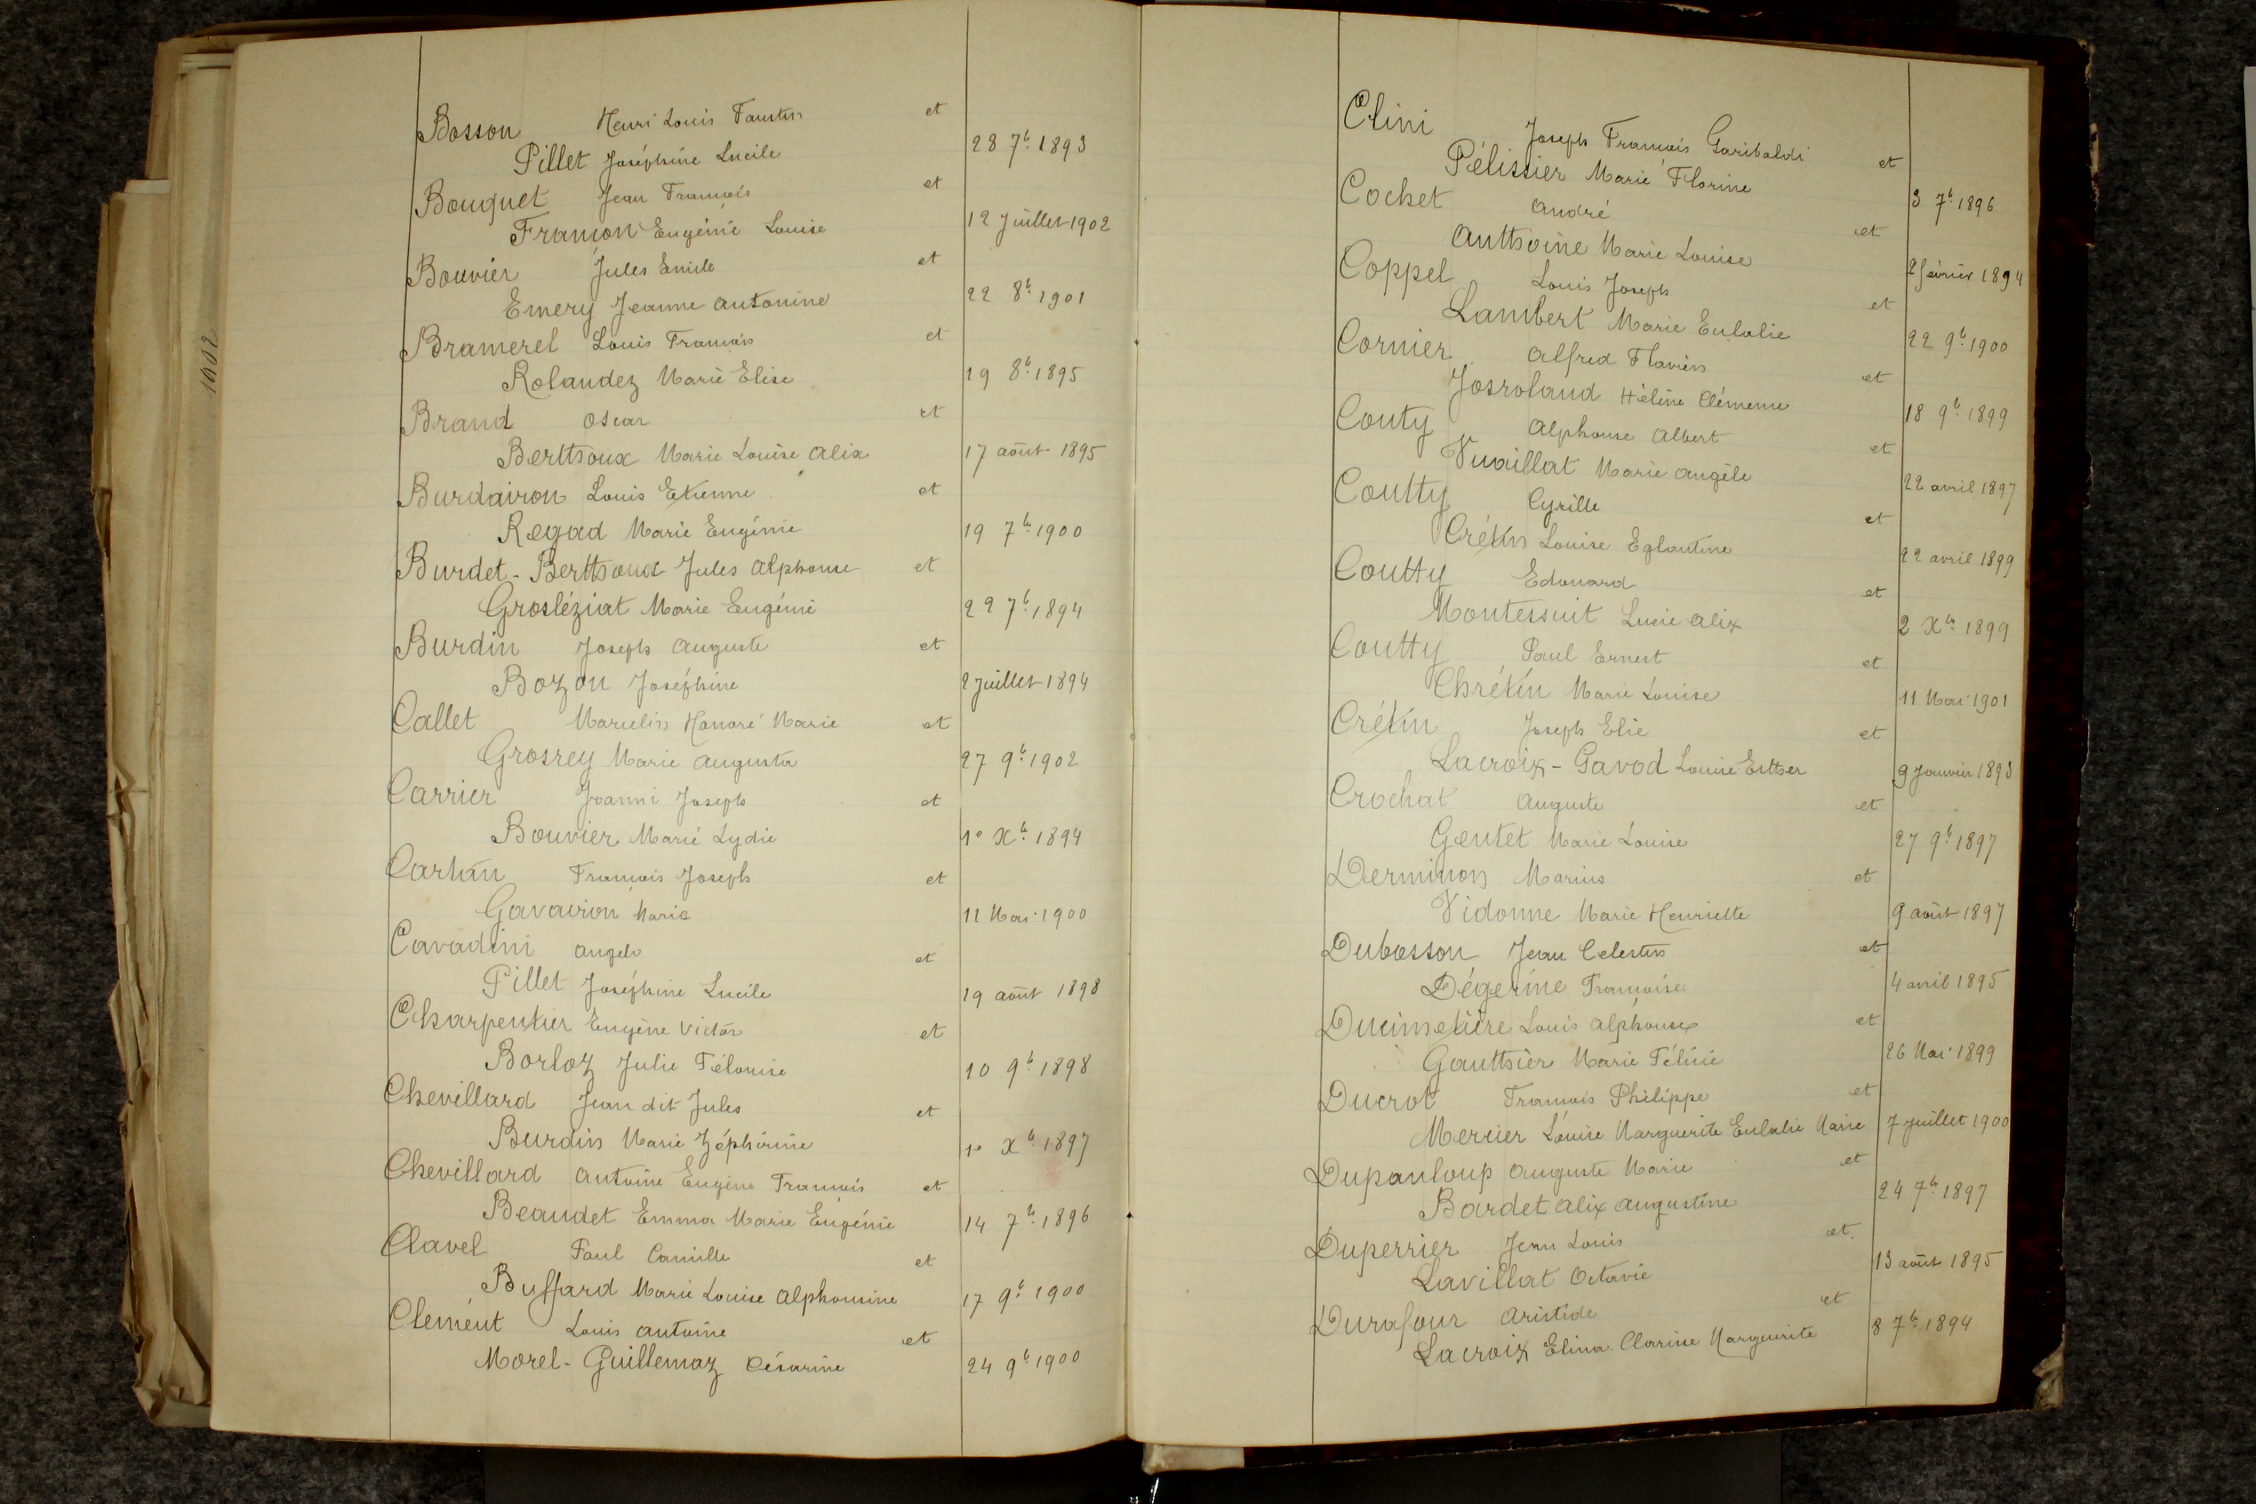 Bosson Henri Louis Faustin et
Pillet Joséphine Lucile 28 7b. 1893
Bouquet Jean François et
Françon Eugénie Louise 12 Juillet 1902
Bouvier Jules Emile et
Emery Jeanne Antonine 22 8b. 1901
Bramerel Louis François et
Rolandez Marie Elise 19 8b. 1895
Brand Oscar et
Berthoux Marie Louise Alix 17 août 1895
Burdairon Louis Etienne et
Regad Marie Eugénie 19 7b. 1900
Burdet-Berthoud Jules Alphonse et
Grosléziat Marie Eugénie 29 7b. 1894
Burdin Joseph Auguste et
Bozon Joséphine 2 Juillet 1894
Callet Marcelin Honoré Marie et
Grosrey Marie Augusta 27 9b. 1902
Carrier Joanni Joseph et
Bouvier Marie Lydie 1e Xb. 1894
Carlan François Joseph et
Gavairon Marie 11 Mai 1900
Cavadini Angelo et
Pillet Joséphine Lucile 19 août 1898
Charpentier Eugène Victor et
Borloz Julie Félouise 10 9b. 1898
Chevillard Jean dit Jules et
Burdin Marie Zéphirine 1e Xb. 1897
Chevillard Antoine Eugène François et
Beaudet Emma Marie Eugénie 14 7b. 1896
Clavel Paul Camille et
Buffard Marie Louise Alphonsine 17 9b. 1900
Clément Louis Antoine et
Morel-Guillemaz Césarine 24 9b 1900
1902
Clini Joseph François Garibaldi et
Pélissier Marie Florine 3 7b. 1896
Cochet André et
Anthoine Marie Louise 2 février 1894
Coppel Louis Joseph et
Lambert Marie Eulalie 22 9b. 1900
Cornier Alfred Flavien et
Josroland Hélène Clémence 18 9b. 1899
Couty Alphonse Albert et
Vuaillat Marie Angèle 22 avril 1897
Coutty Cyrille et
Crétin Louise Eglantine 22 avril 1899
Coutty Edouard et
Montessuit Lucie Alix 2 Xb. 1899
Coutty Paul Ernest et
Chrétin Marie Louise 11 Mai 1901
Crétin Joseph Elie et
Lacroix-Gavod Louise Esther 9 Janvier 1893
Crochat Auguste et
Gentet Marie Louise 27 9b. 1897
Derminon Marius et
Vidonne Marie Henriette 9 août 1897
Dubosson Jean Celestin et
Dégerine Françoise 4 avril 1895
Ducimetière Louis Alphonse et
Gauthier Marie Félicie 26 Mai 1899
Ducrot François Philippe et
Mercier Louise Marguerite Eulalie Marie 7 Juillet 1900
Dupanloup Auguste Marie et
Bardet Alix Augustine 24 7b. 1897
Duperrier Jean Louis et
Lavillat Octavie 13 août 1895
Durafour Aristide et
Lacroix Elina Clarisse Marguerite 8 7b. 1894